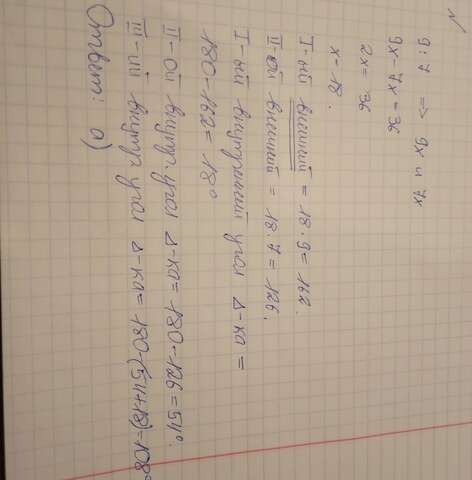 N
9:7 => 9x и 7x
9x-7x=36
2x=36
x-18.
I-ый внешний = 18·9=162.
II-ой внешний = 18·7=126.
I-ый внутренний угол Δ-ка =
180-162=18°
II-ой внутр. угол Δ-ка=180-126=54°.
III-ий внутр. угол Δ-ка=180-(54+18)=108°
Ответ: а)